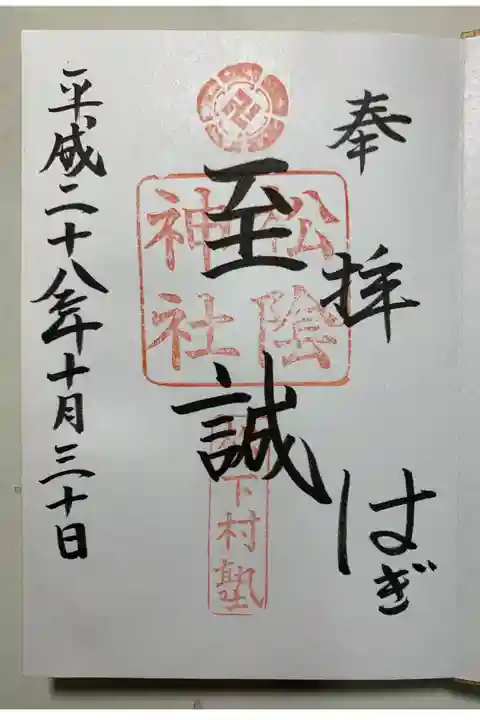 奉拝 はぎ
松陰
神社
至誠
松下村塾
平成二十八年十月三十日